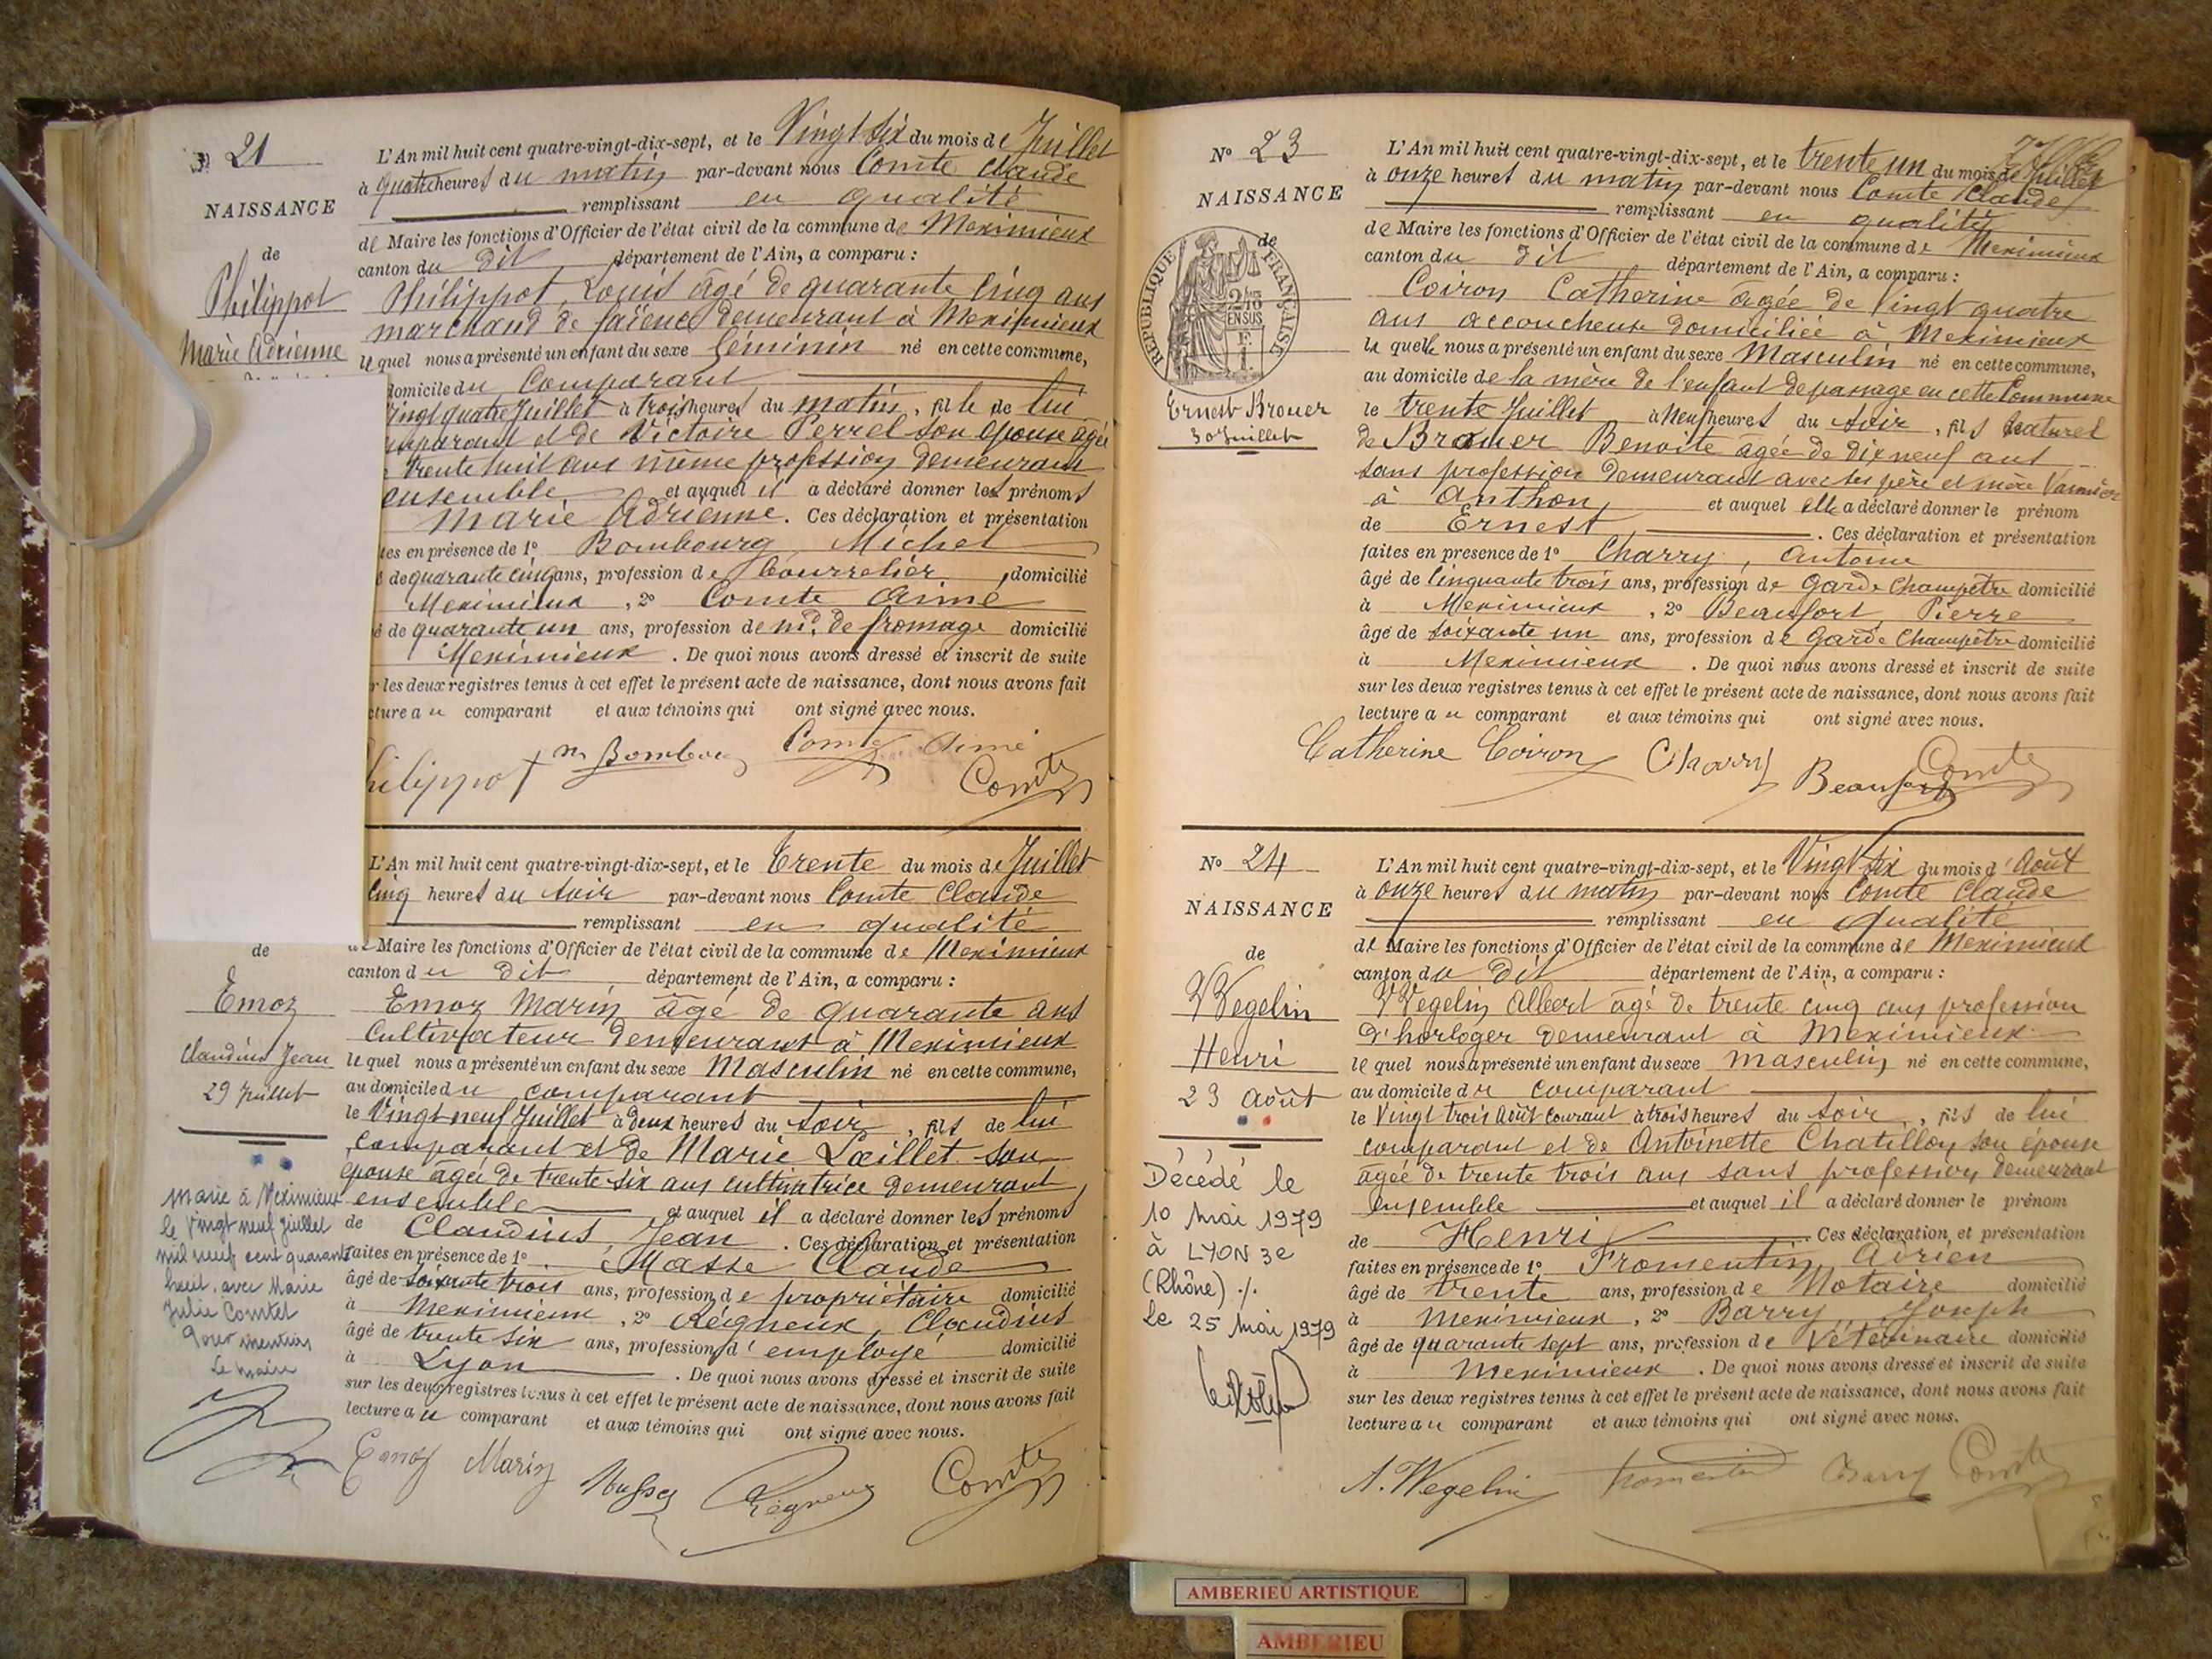 21
NAISSANCE
de
Philippot
Marie Adrienne
L'An mil huit cent quatre-vingt-dix-sept, et le Vingt Six du mois de Juillet
à quatre heures du matin par-devant nous Comte Claude
remplissant en qualité
de Maire les fonctions d'Officier de l'état civil de la commune de Meximieux
canton du dit département de l'Ain, a comparu :
Philippot, Louis âgé de quarante cinq ans
marchand de faïence demeurant à Meximieux
lequel nous a présenté un enfant du sexe féminin né en cette commune,
domicile du Comparant
vingt quatre Juillet à trois heures du matin, fille de lui
comparant et de Victoire Perrel son épouse agée
trente huit ans même profession demeurant
ensemble et auquel il a déclaré donner les prénoms
Marie Adrienne. Ces déclaration et présentation
tes en présence de 1° Bombourg Michel
de quarante cinq ans, profession de bourrelier, domicilié
Meximieux, 2° Comte Aimé
é de quarante un ans, profession de md. de fromage domicilié
Meximieux. De quoi nous avons dressé et inscrit de suite
r les deux registres tenus à cet effet le présent acte de naissance, dont nous avons fait
cture au comparant et aux témoins qui ont signé avec nous.
hilippot m Bombou Comte Aimé
Comte
L'An mil huit cent quatre-vingt-dix-sept, et le trente du mois de Juillet
cinq heures du soir par-devant nous Comte Claude
remplissant en qualité
de Maire les fonctions d'Officier de l'état civil de la commune de Meximieux
canton du dit département de l'Ain, a comparu :
de
Emoz
Claudius Jean
29 Juillet
Emoz Marin âgé de quarante ans
Cultivateur demeurant à Meximieux
lequel nous a présenté un enfant du sexe Masculin né en cette commune,
au domicile du comparant
le Vingt neuf Juillet à deux heures du soir, fils de lui
comparant et de Marie Lœillet son
épouse âgée de trente six ans cultivatrice demeurant
ensemble et auquel il a déclaré donner les prénoms
de Claudius Jean. Ces déclaration et présentation
faites en présence de 1° Masse Claude
âgé de soixante trois ans, profession de propriétaire domicilié
à Meximieux, 2° Régneux, Claudius
âgé de trente six ans, profession d'employé domicilié
à Lyon. De quoi nous avons dressé et inscrit de suite
sur les deux registres tenus à cet effet le présent acte de naissance, dont nous avons fait
lecture au comparant et aux témoins qui ont signé avec nous.
Marié à Meximieux
le vingt neuf Juillet
mil neuf cent quarante
huit, avec Marie
Julie Comtet
Pour mention
Le Maire
Emoz Marin Masse Régneux Comte
N° 23
NAISSANCE
de
RÉPUBLIQUE FRANÇAISE
Ernest Brouer
30 Juillet
L'An mil huit cent quatre-vingt-dix-sept, et le trente un du mois de Juillet
à onze heures du matin par-devant nous Comte Claude
remplissant en qualité
de Maire les fonctions d'Officier de l'état civil de la commune de Meximieux
canton du dit département de l'Ain, a comparu :
Coiron Catherine âgée de Vingt quatre
ans accoucheuse domiciliée à Meximieux
laquelle nous a présenté un enfant du sexe Masculin né en cette commune,
au domicile de la mère de l'enfant de passage en cette Commune
le trente Juillet à neuf heures du soir, fils naturel
de Brouer Benoite âgée de dix neuf ans
sans profession demeurant avec ses père et mère
à Anthon et auquel elle a déclaré donner le prénom
de Ernest. Ces déclaration et présentation
faites en présence de 1° Charry, Antoine
âgé de cinquante trois ans, profession de Garde Champêtre domicilié
à Meximieux, 2° Beaufort, Pierre
âgé de soixante un ans, profession de Garde Champêtre domicilié
à Meximieux. De quoi nous avons dressé et inscrit de suite
sur les deux registres tenus à cet effet le présent acte de naissance, dont nous avons fait
lecture au comparant et aux témoins qui ont signé avec nous.
Catherine Coiron Charry Beaufort Comte
N° 24
NAISSANCE
de
Wegelin
Henri
23 Août
L'An mil huit cent quatre-vingt-dix-sept, et le Vingt six du mois d'Août
à onze heures du matin par-devant nous Comte Claude
remplissant en qualité
de Maire les fonctions d'Officier de l'état civil de la commune de Meximieux
canton du dit département de l'Ain, a comparu :
Wegelin Albert âgé de trente cinq ans profession
d'horloger demeurant à Meximieux
lequel nous a présenté un enfant du sexe masculin né en cette commune,
au domicile du comparant
le Vingt trois Août courant à trois heures du soir, fils de lui
comparant et de Antoinette Chatillon son épouse
âgée de trente trois ans sans profession demeurant
ensemble et auquel il a déclaré donner le prénom
de Henri Ces déclaration et présentation
faites en présence de 1° Fromentin Adrien
âgé de trente ans, profession de Notaire domicilié
à Meximieux, 2° Barry Joseph
âgé de quarante sept ans, profession de Vétérinaire domicilié
à Meximieux. De quoi nous avons dressé et inscrit de suite
sur les deux registres tenus à cet effet le présent acte de naissance, dont nous avons fait
lecture au comparant et aux témoins qui ont signé avec nous.
Décédé le
10 mai 1979
à LYON 3e
(Rhône) ./.
Le 25 mai 1979
A. Wegelin Fromentin Barry Comte
AMBERIEU ARTISTIQUE
AMBERIEU